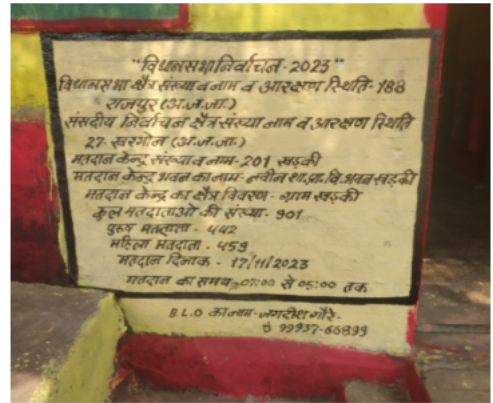 "विधानसभा निर्वाचन-2023"
विधानसभा क्षेत्र संख्या व नाम व आरक्षण स्थिति-188
राजपुर (अ.ज.जा.)
संसदीय निर्वाचन क्षेत्र संख्या नाम व आरक्षण स्थिति
27-खरगोन (अ.ज.जा.)
मतदान केन्द्र संख्या व नाम-201 खड़की
मतदान केन्द्र भवन का नाम-नवीन शा.प्रा.वि.भवन खड़की
मतदान केन्द्र का क्षेत्र विवरण-ग्राम खड़की
कुल मतदाताओ की संख्या-901
पुरुष मतदाता-442
महिला मतदाता-459
मतदान दिनाक-17/11/2023
मतदान का समय-07:00 से 05:00 तक
B.L.O का नाम-जगदीश गौरे-
99937-66899